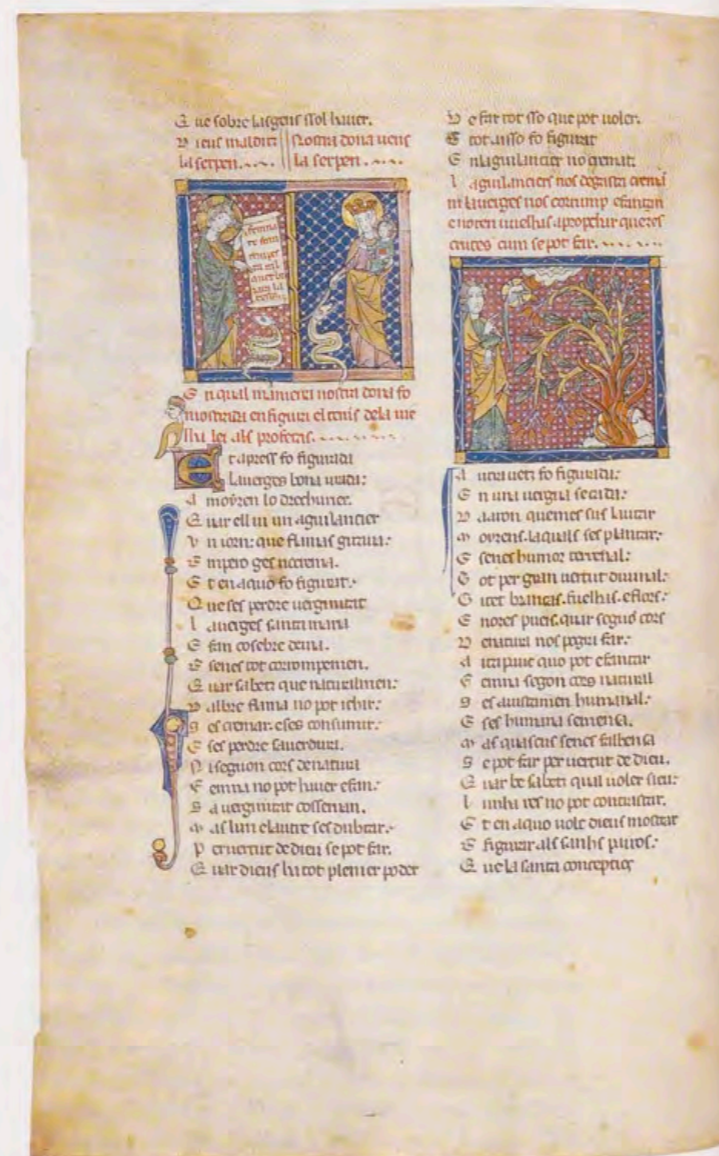 Que sobre las gens ssol hauer.
Dieus malditz
la serpen.
Nostra dona uens
la serpen.
femna
te fran
En qual maniera nostra dona fo
mostrada en figura el temps de la uie
lha lei als profetas.
Et apress fo figurada
La uerges bona urada:
A moyzen lo drechurier.
Quar ell ui un aguilancier
Un iorn: que flamas gitaua:
Empero ges no crema.
Et en aquo fo figurat:
Que ses perdre uerginitat
La uerges santa maria
Efan cosebre deuia.
E senes tot corrompemen.
Quar sabetz que naturalmen:
D albre flama no pot ichir:
Ses cremar. e ses consumir:
E ses perdre sa uerdura.
Ni segon cors de natura
Femna no pot hauer efan:
Sa uerginitat cosseruan.
Mas lun e lautre ses dubtar:
Per uertut de dieu se pot far.
Quar dieus ha tot plenier poder
De far tot sso que pot uoler.
E tot aisso fo figurat
En laguilancier no cremat.
Laguilanciers nos degasta crema
ni la uerges nos corrump efantan
e noten merauelhas
cum se pot far.
Autra uetz fo figurada:
En una uerga secada:
D aaron que mes sus lautar
Moyzens. la quals ses plantar:
E senes humor terrenal:
Tot per gran uertut diuinal:
Gitet brancas. fuelhas. e flors:
E nores pueis. quar segon cors
De natura nos pogra far:
Aitan pauc quo pot efantar
Femna segon cors natural
Ses aiustamen humanal:
E ses humana semensa.
Mas quascus senes falhensa
Se pot far per uertut de dieu.
Quar be sabetz qual uoler sieu:
Lunha res no pot contrastar.
Et en aquo uolc dieus mostrar
E figurar als sanhs payros:
Que la santa conceptios